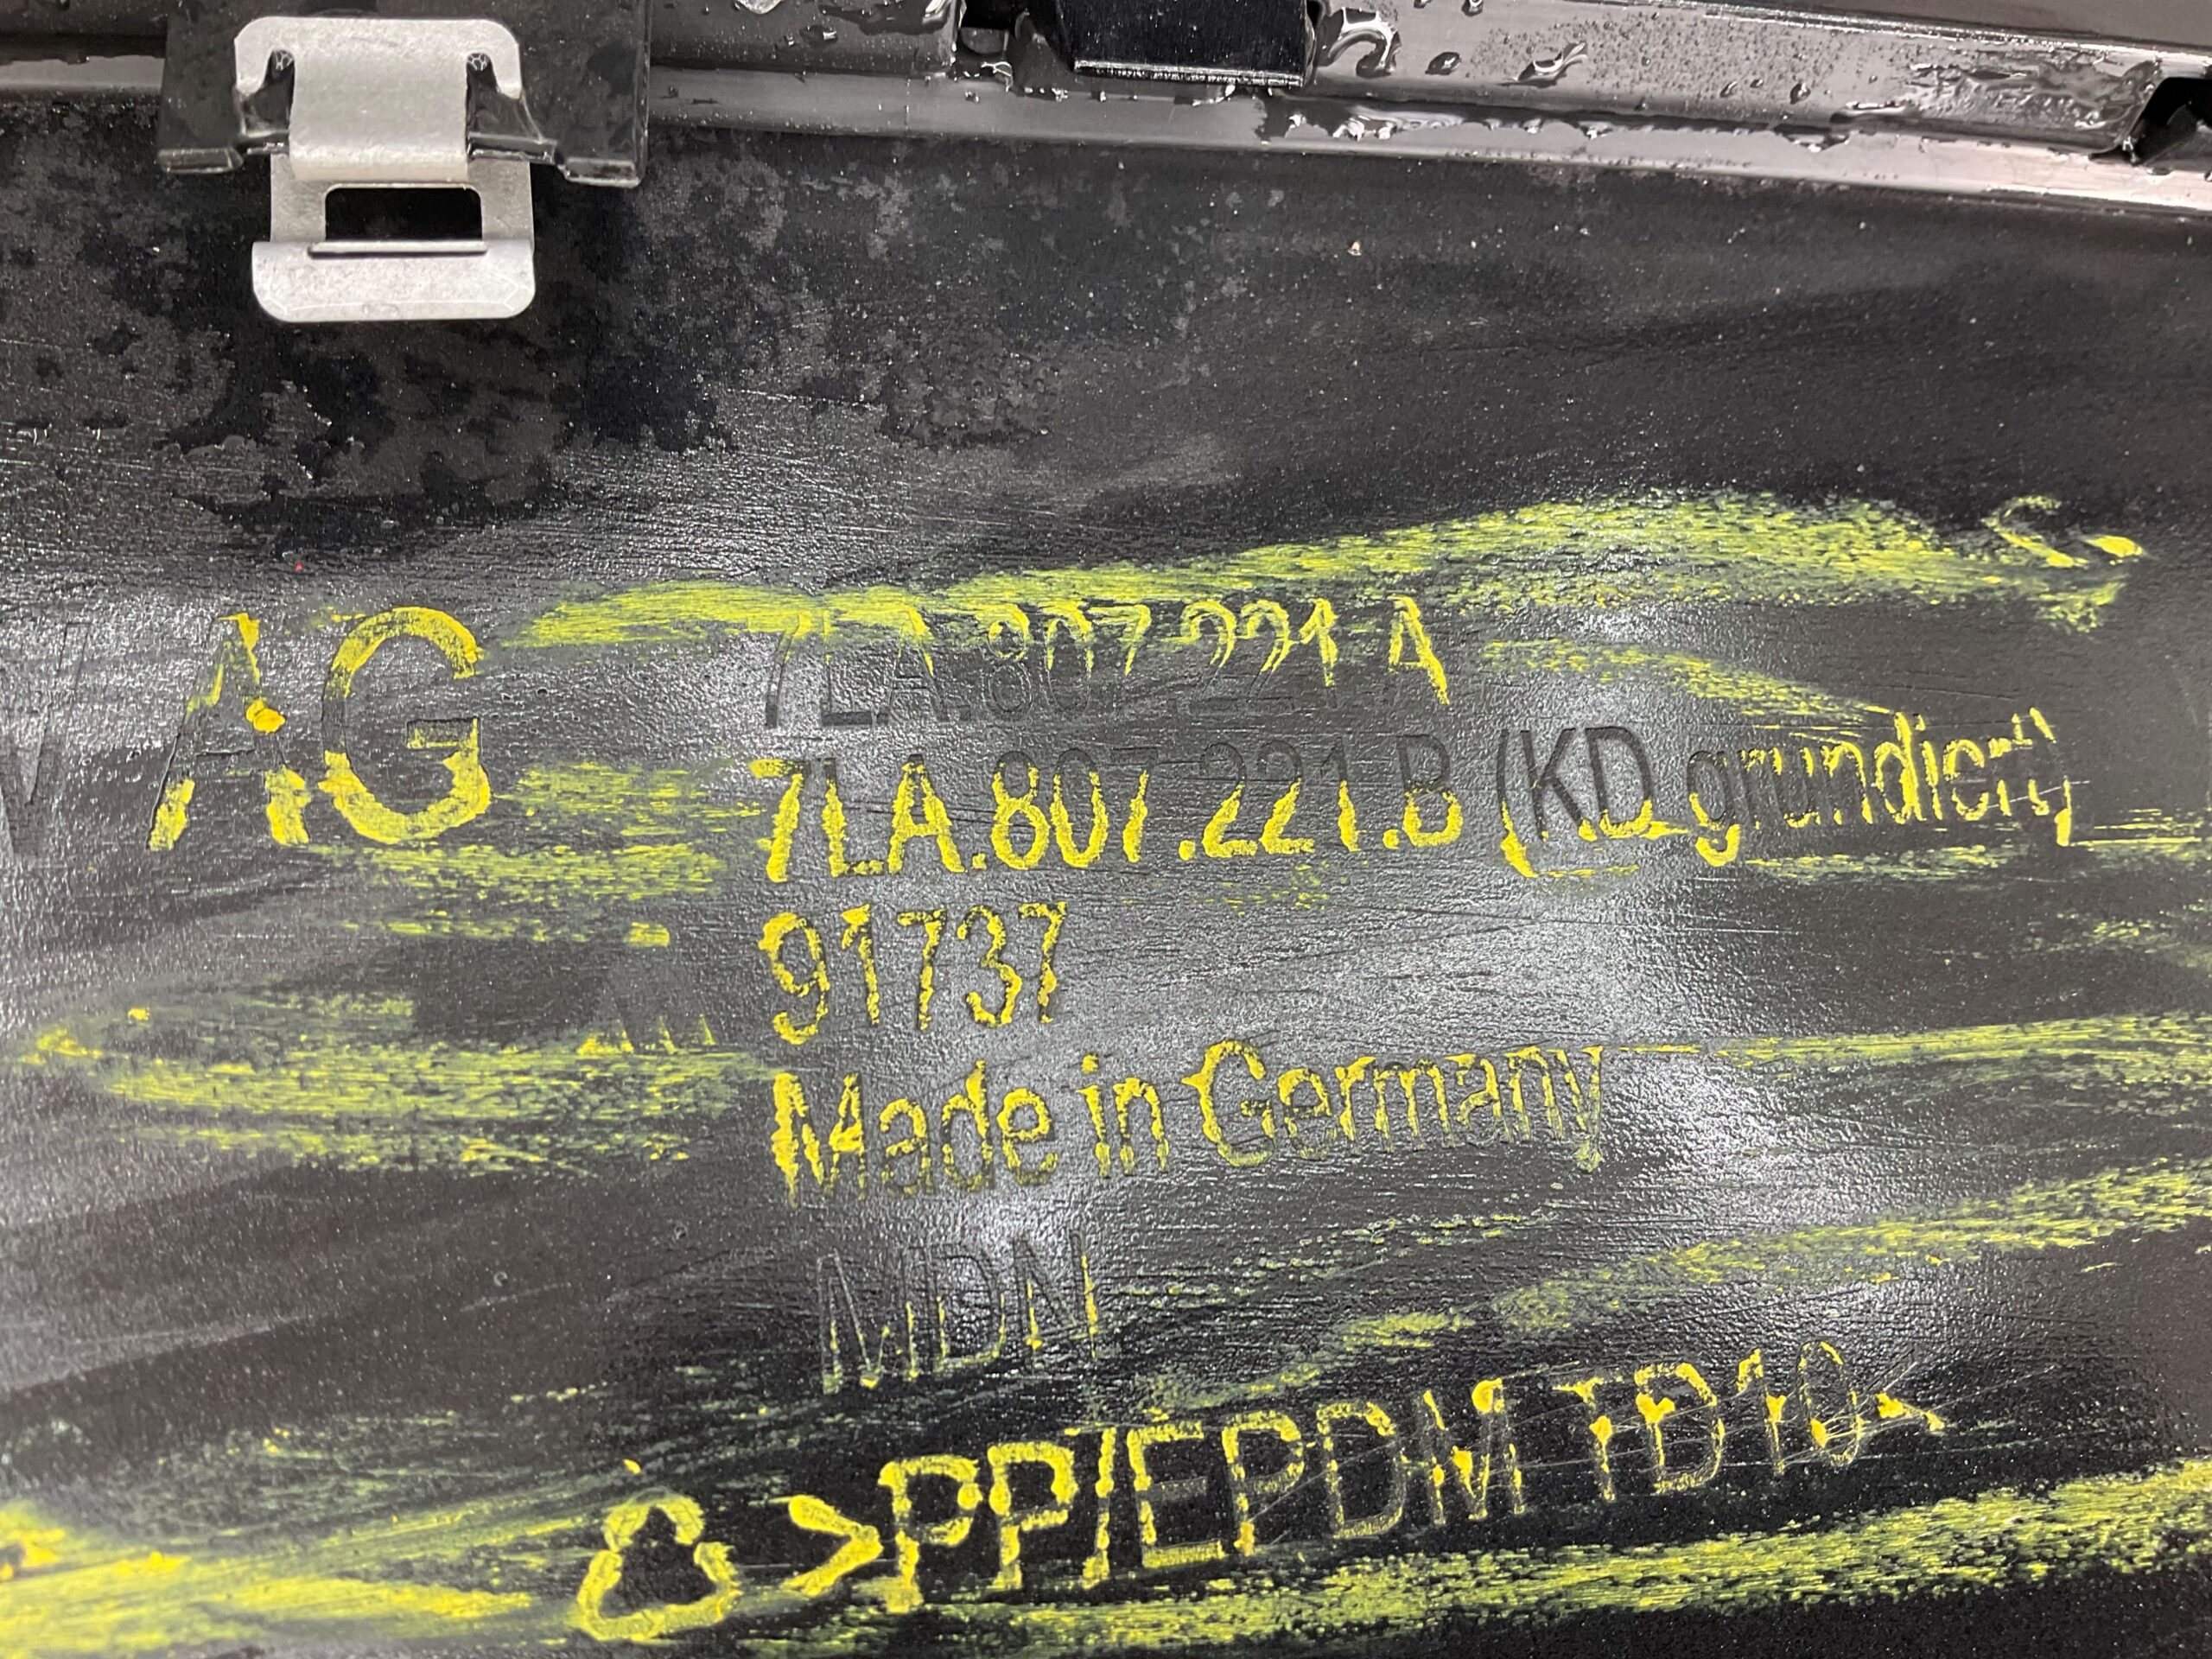 AG
7LA.807.221.A
7LA.807.221.B (KD grundiert)
91737
Made in Germany
MDN
>PP/EPDM TD10<